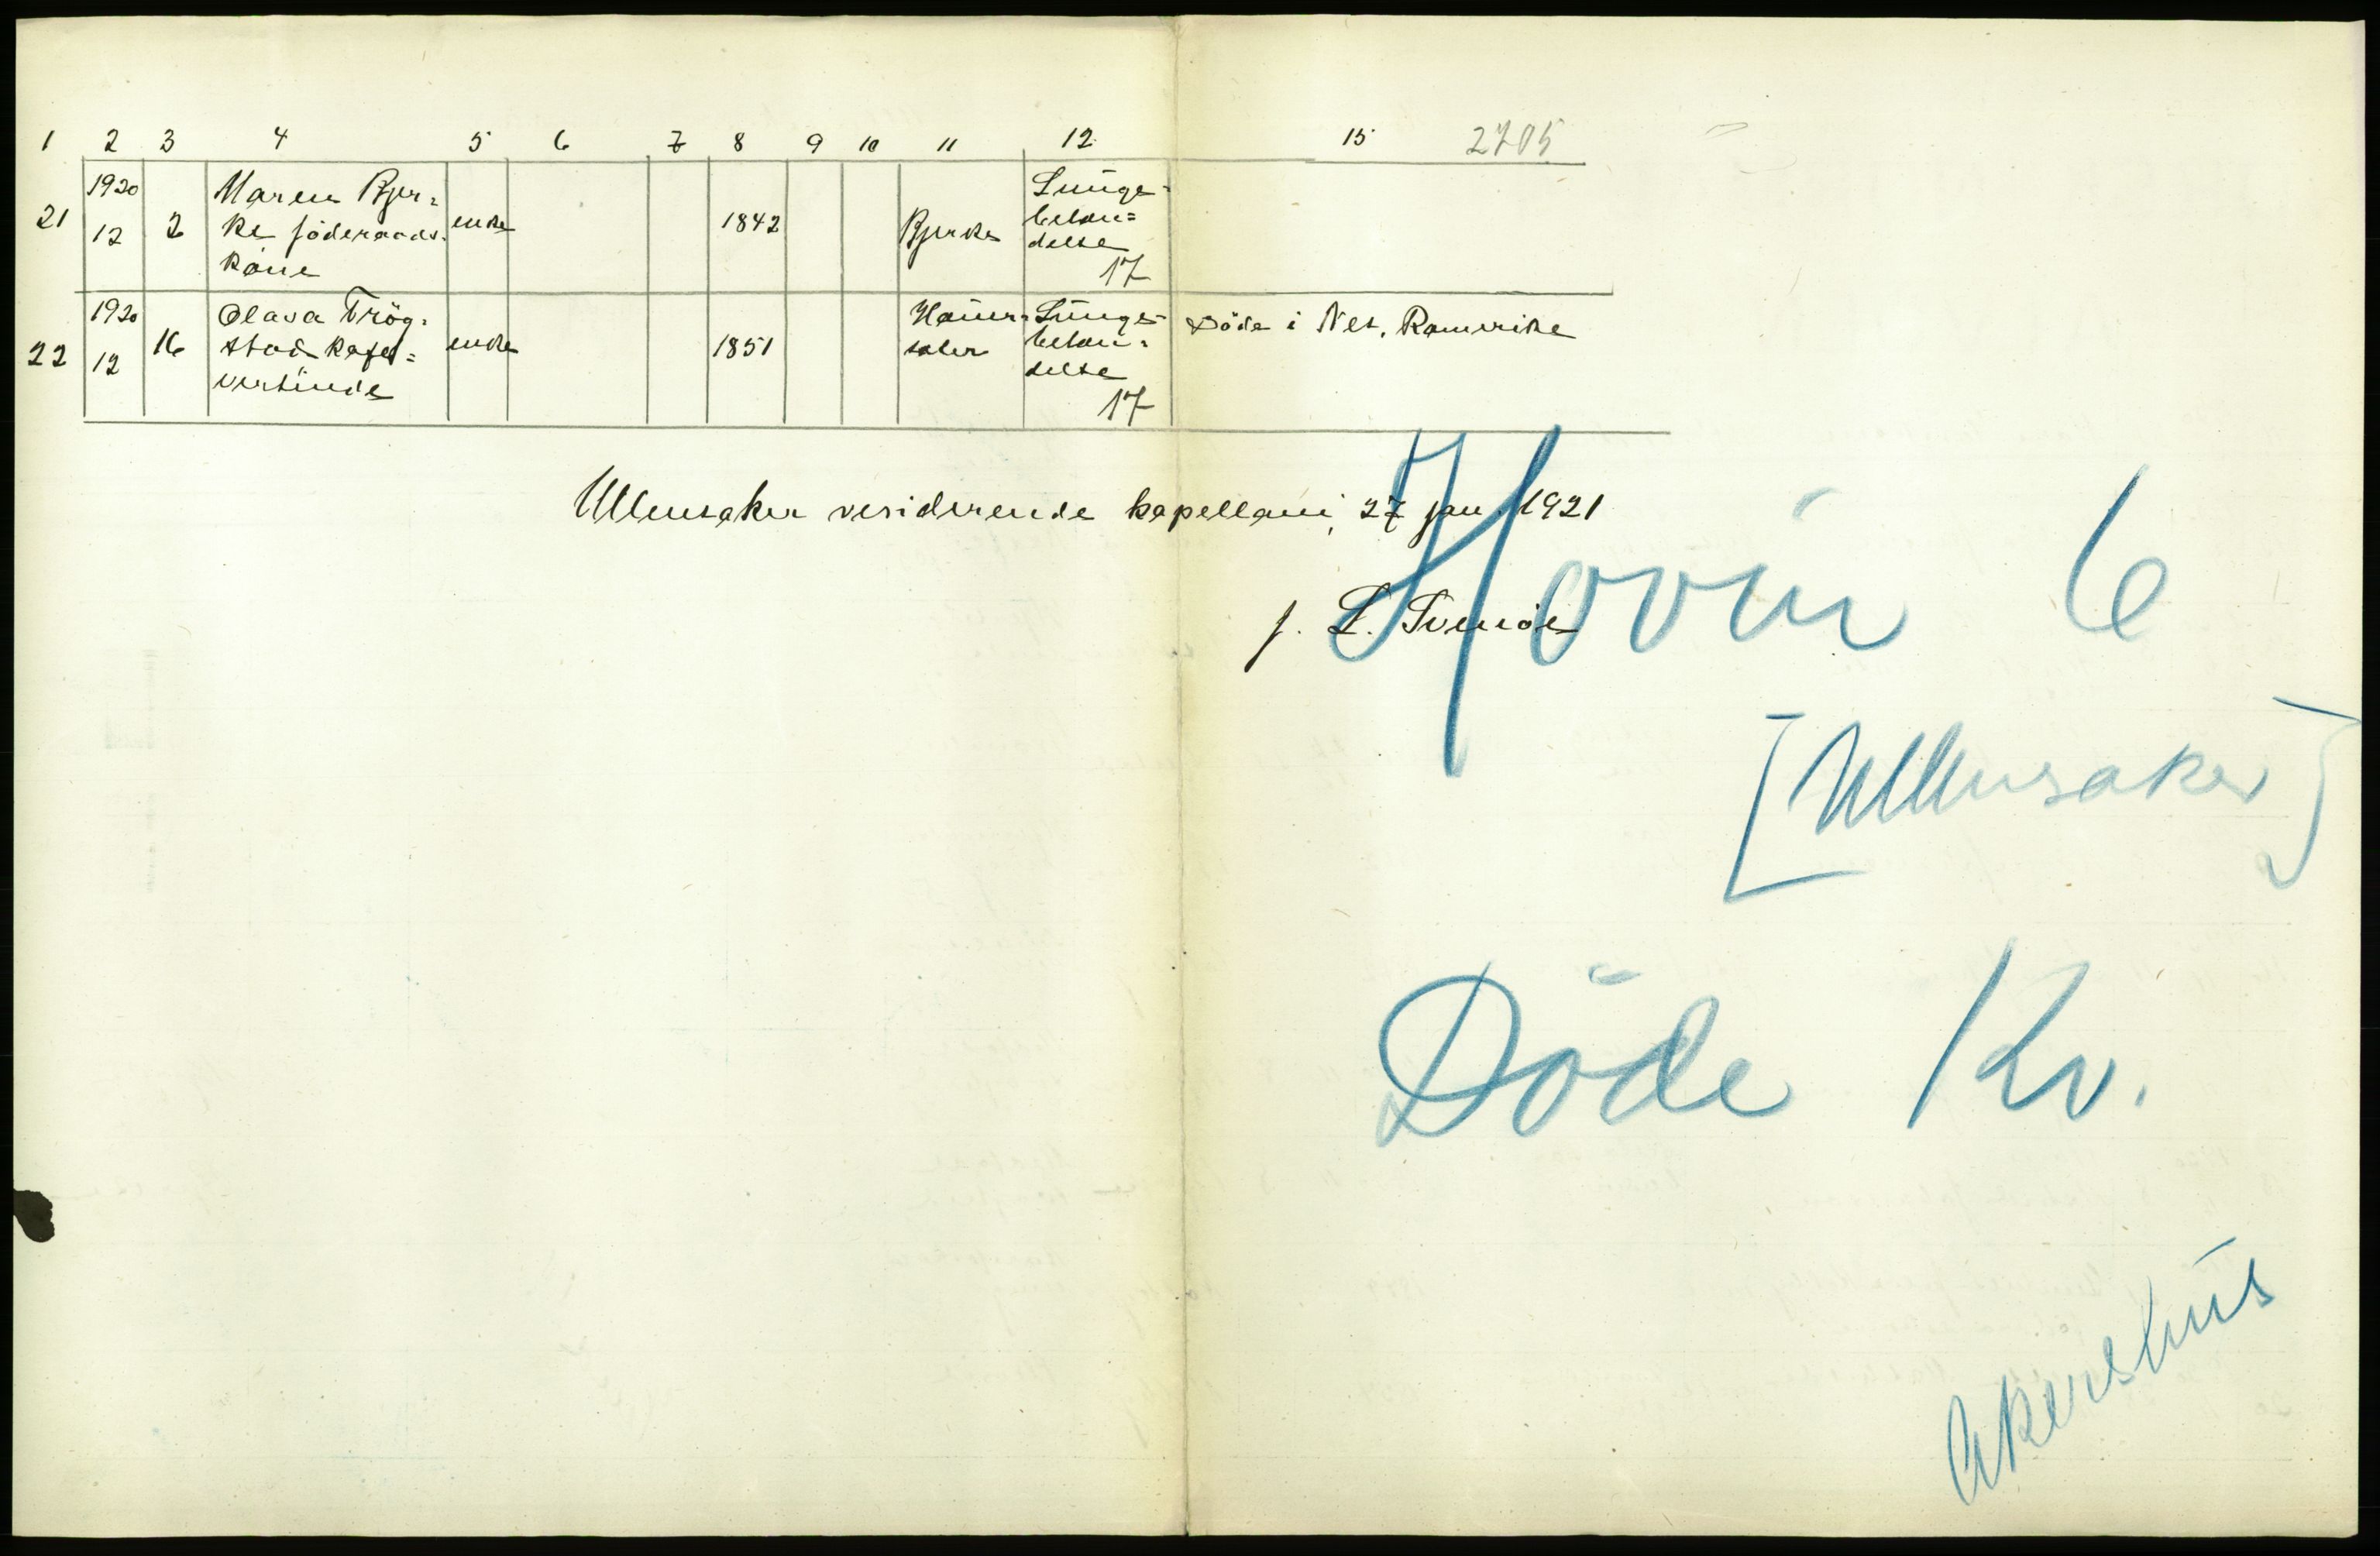 1 2 3 4 5 6 7 8 9 10 11 12 15 2705
21 1920 12 2 Maren Bjer= ke föderaads= kone enke 1842 Bjerke Lunge= beten= delse 17
22 1920 12 16 Olava Trög= stad kafe= vertinde enke 1851 Hauer= säter Lunge= beten= delse 17 Döde i Nes, Romerike
Ullensaker residerende kapellani, 27 jan. 1921
f. L. Tvenöe
Hovin 6
[Ullensaker]
Döde Kv.
Akershus